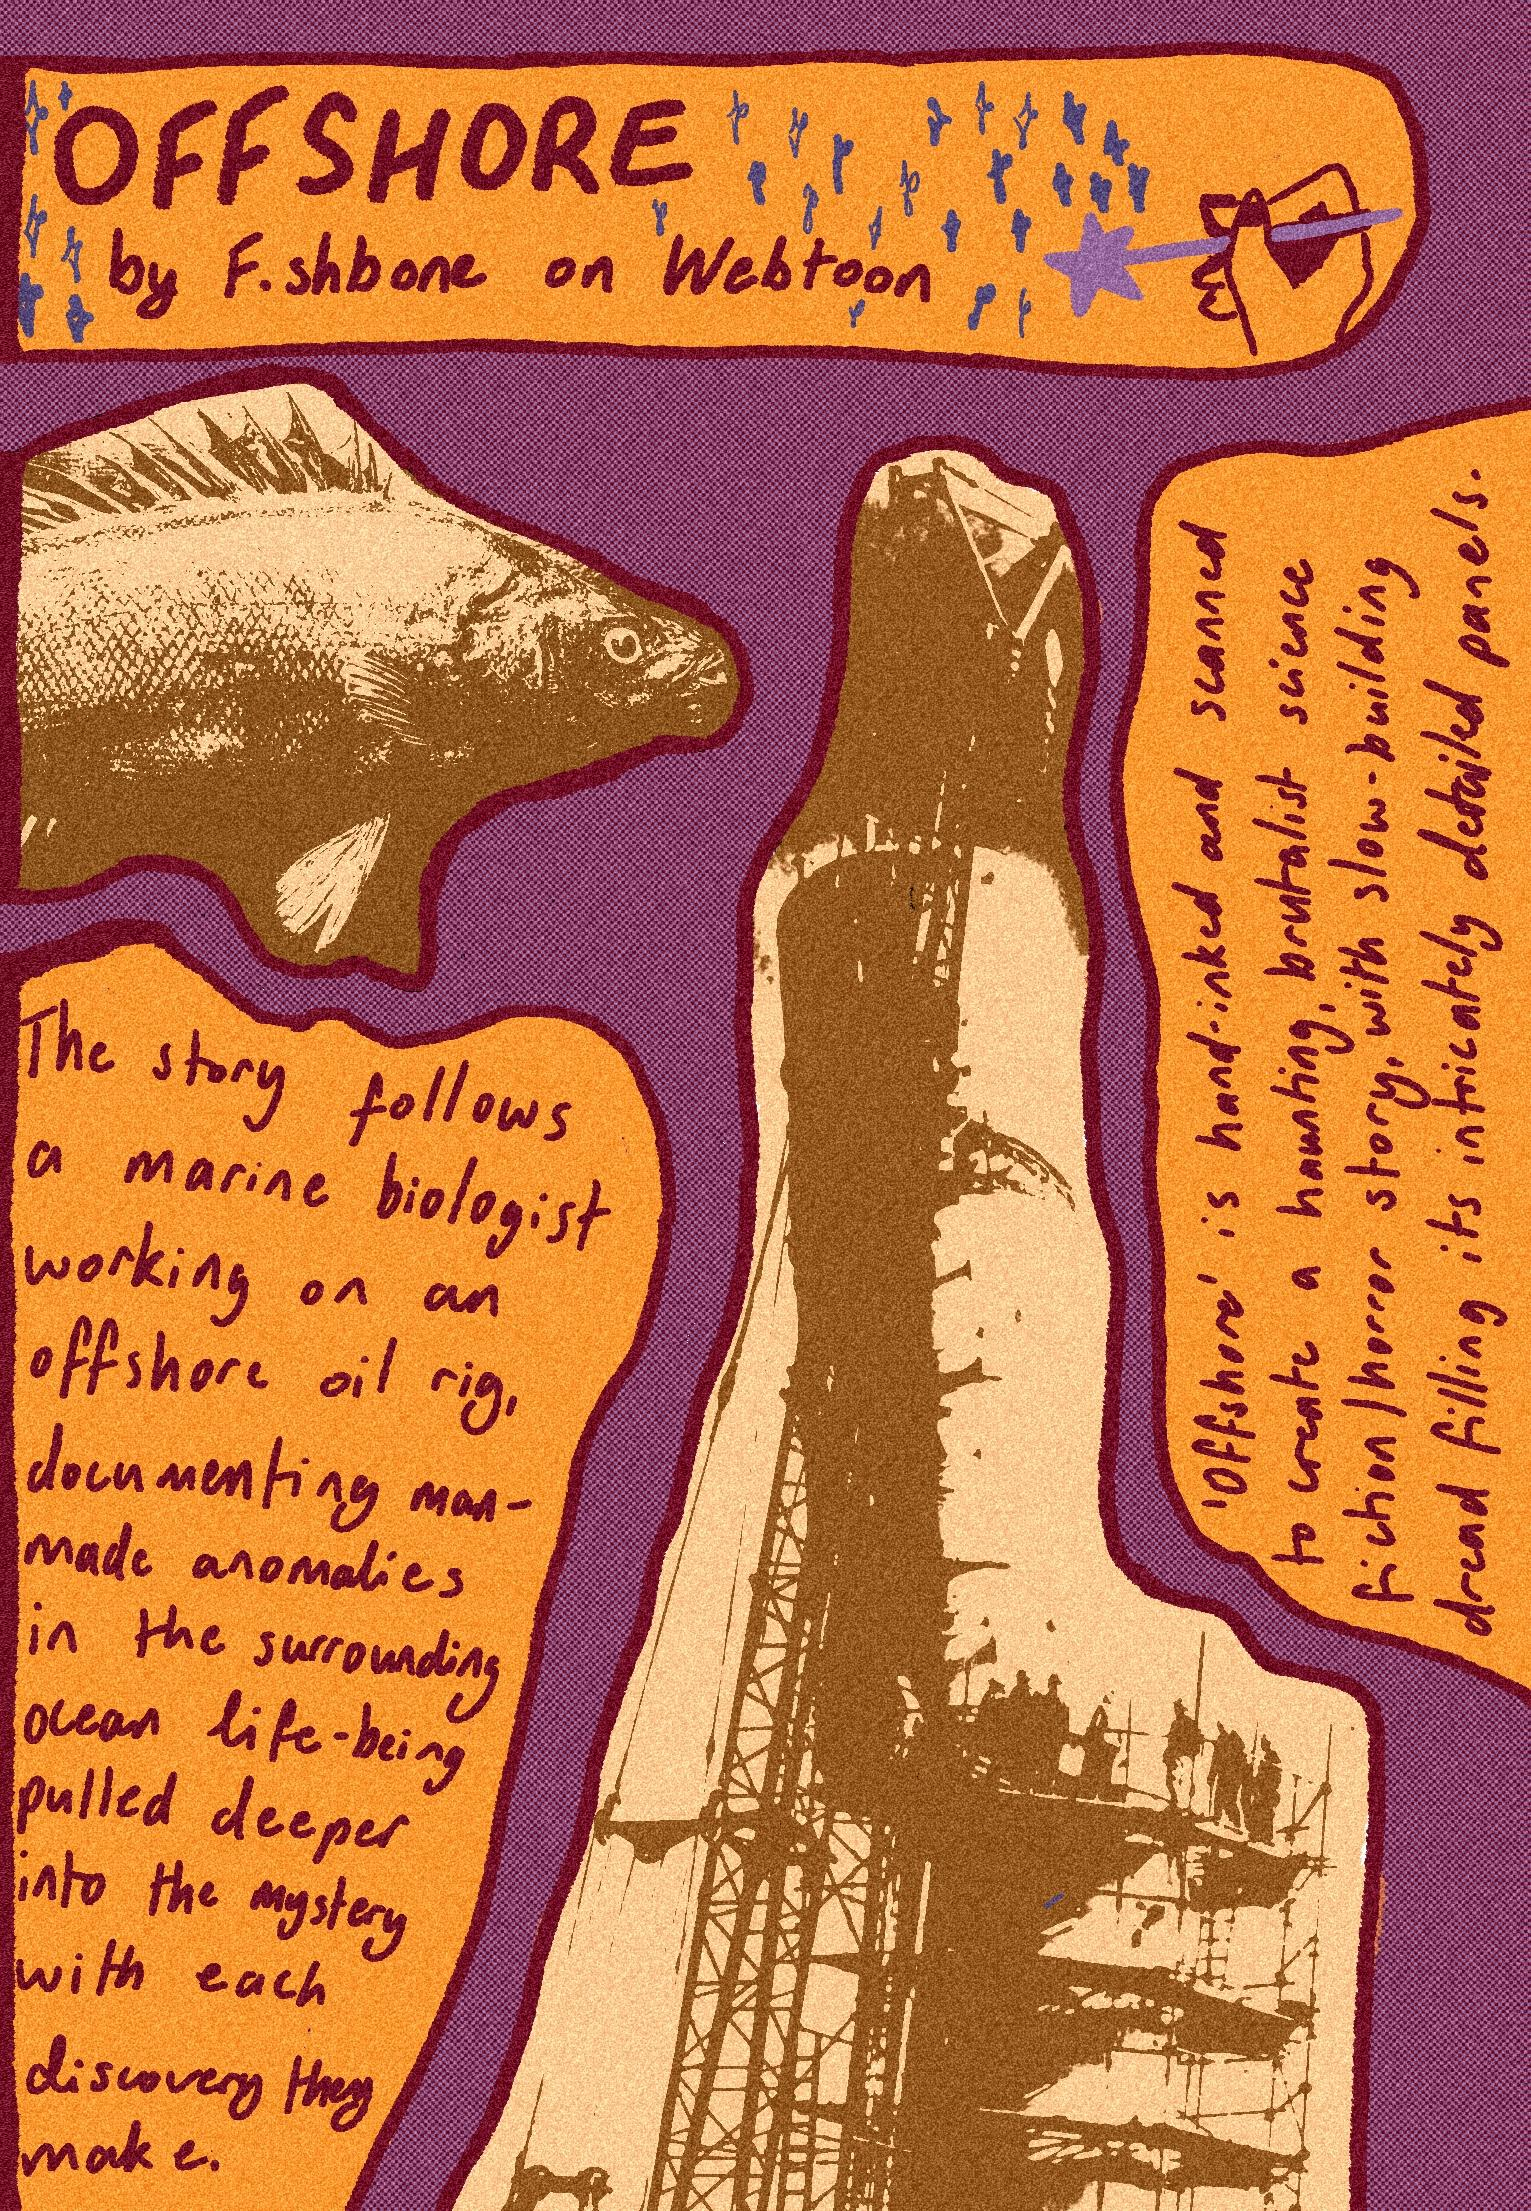 OFFSHORE
by F.shbone on Webtoon
The story follows
a marine biologist
working on an
offshore oil rig,
documenting man-
made anomalies
in the surrounding
ocean life-being
pulled deeper
into the mystery
with each
discovery they
make.
'Offshore' is hand-inked and scanned
to create a haunting, brutalist science
fiction/horror story, with slow-building
dread filling its intricately detailed panels.